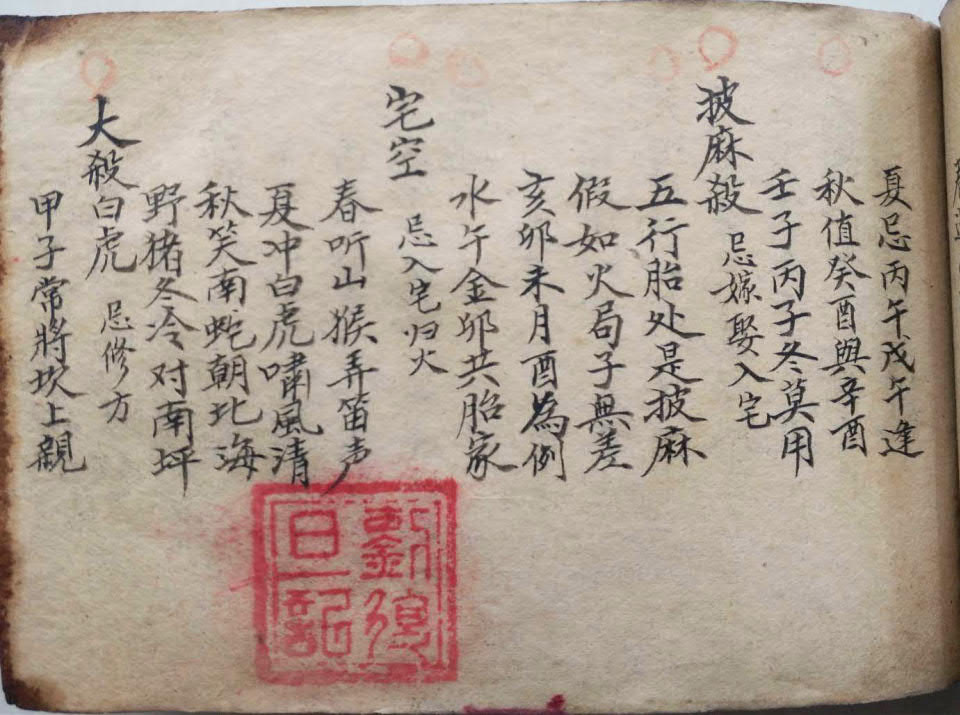 夏忌丙午戊午逢
秋值癸酉與辛酉
壬子丙子冬莫用
披麻殺 忌嫁娶入宅
五行胎处是披麻
假如火局子無差
亥卯未月酉為例
水午金卯共胎家
宅空 忌入宅归火
春听山猴弄笛声
夏冲白虎啸風清
秋笑南蛇朝北海
野猪冬冷对南坪
大殺白虎 忌修方
甲子常將坎上親
劉
旦記